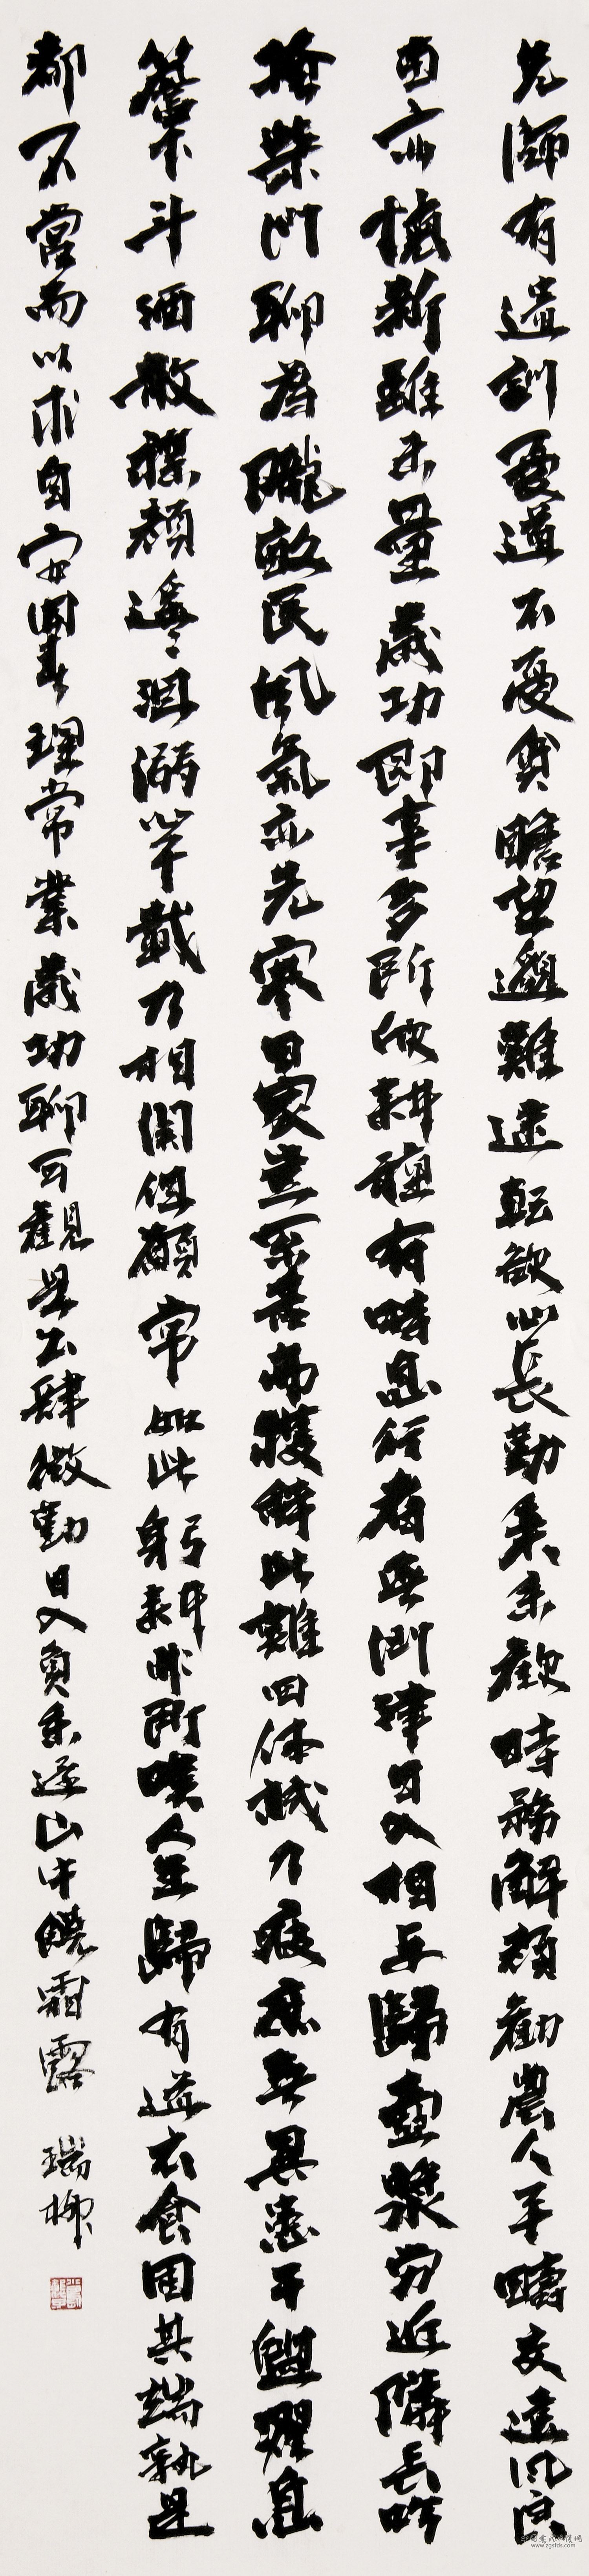 先師有遺訓憂道不憂貧瞻望邈難逮転欲心長勤秉耒歡時務解顏勸農人平疇交遠風良
苗亦懷新雖未量歲功即事多所欣耕種有時息行者無問津日入相與歸壺漿勞近隣長吟
掩柴門聊為隴畝民風氣亦先寒田家豈不苦弗獲辭此難四体誠乃疲庶無異患干盥濯息
簷下斗酒散襟顏遙々沮溺心千載乃相關但願常如此躬耕非所嘆人生歸有道衣食固其端孰是
都不營而以求自安開春理常業歲功聊可觀晨出肆微勤日入負耒還山中饒霜露
瑞柳
www.zgsfds.com